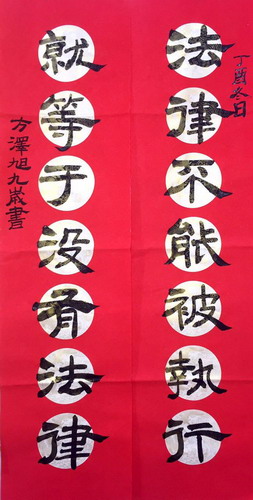 丁酉冬日
法律不能被執行
就等于没有法律
方澤旭九歲書